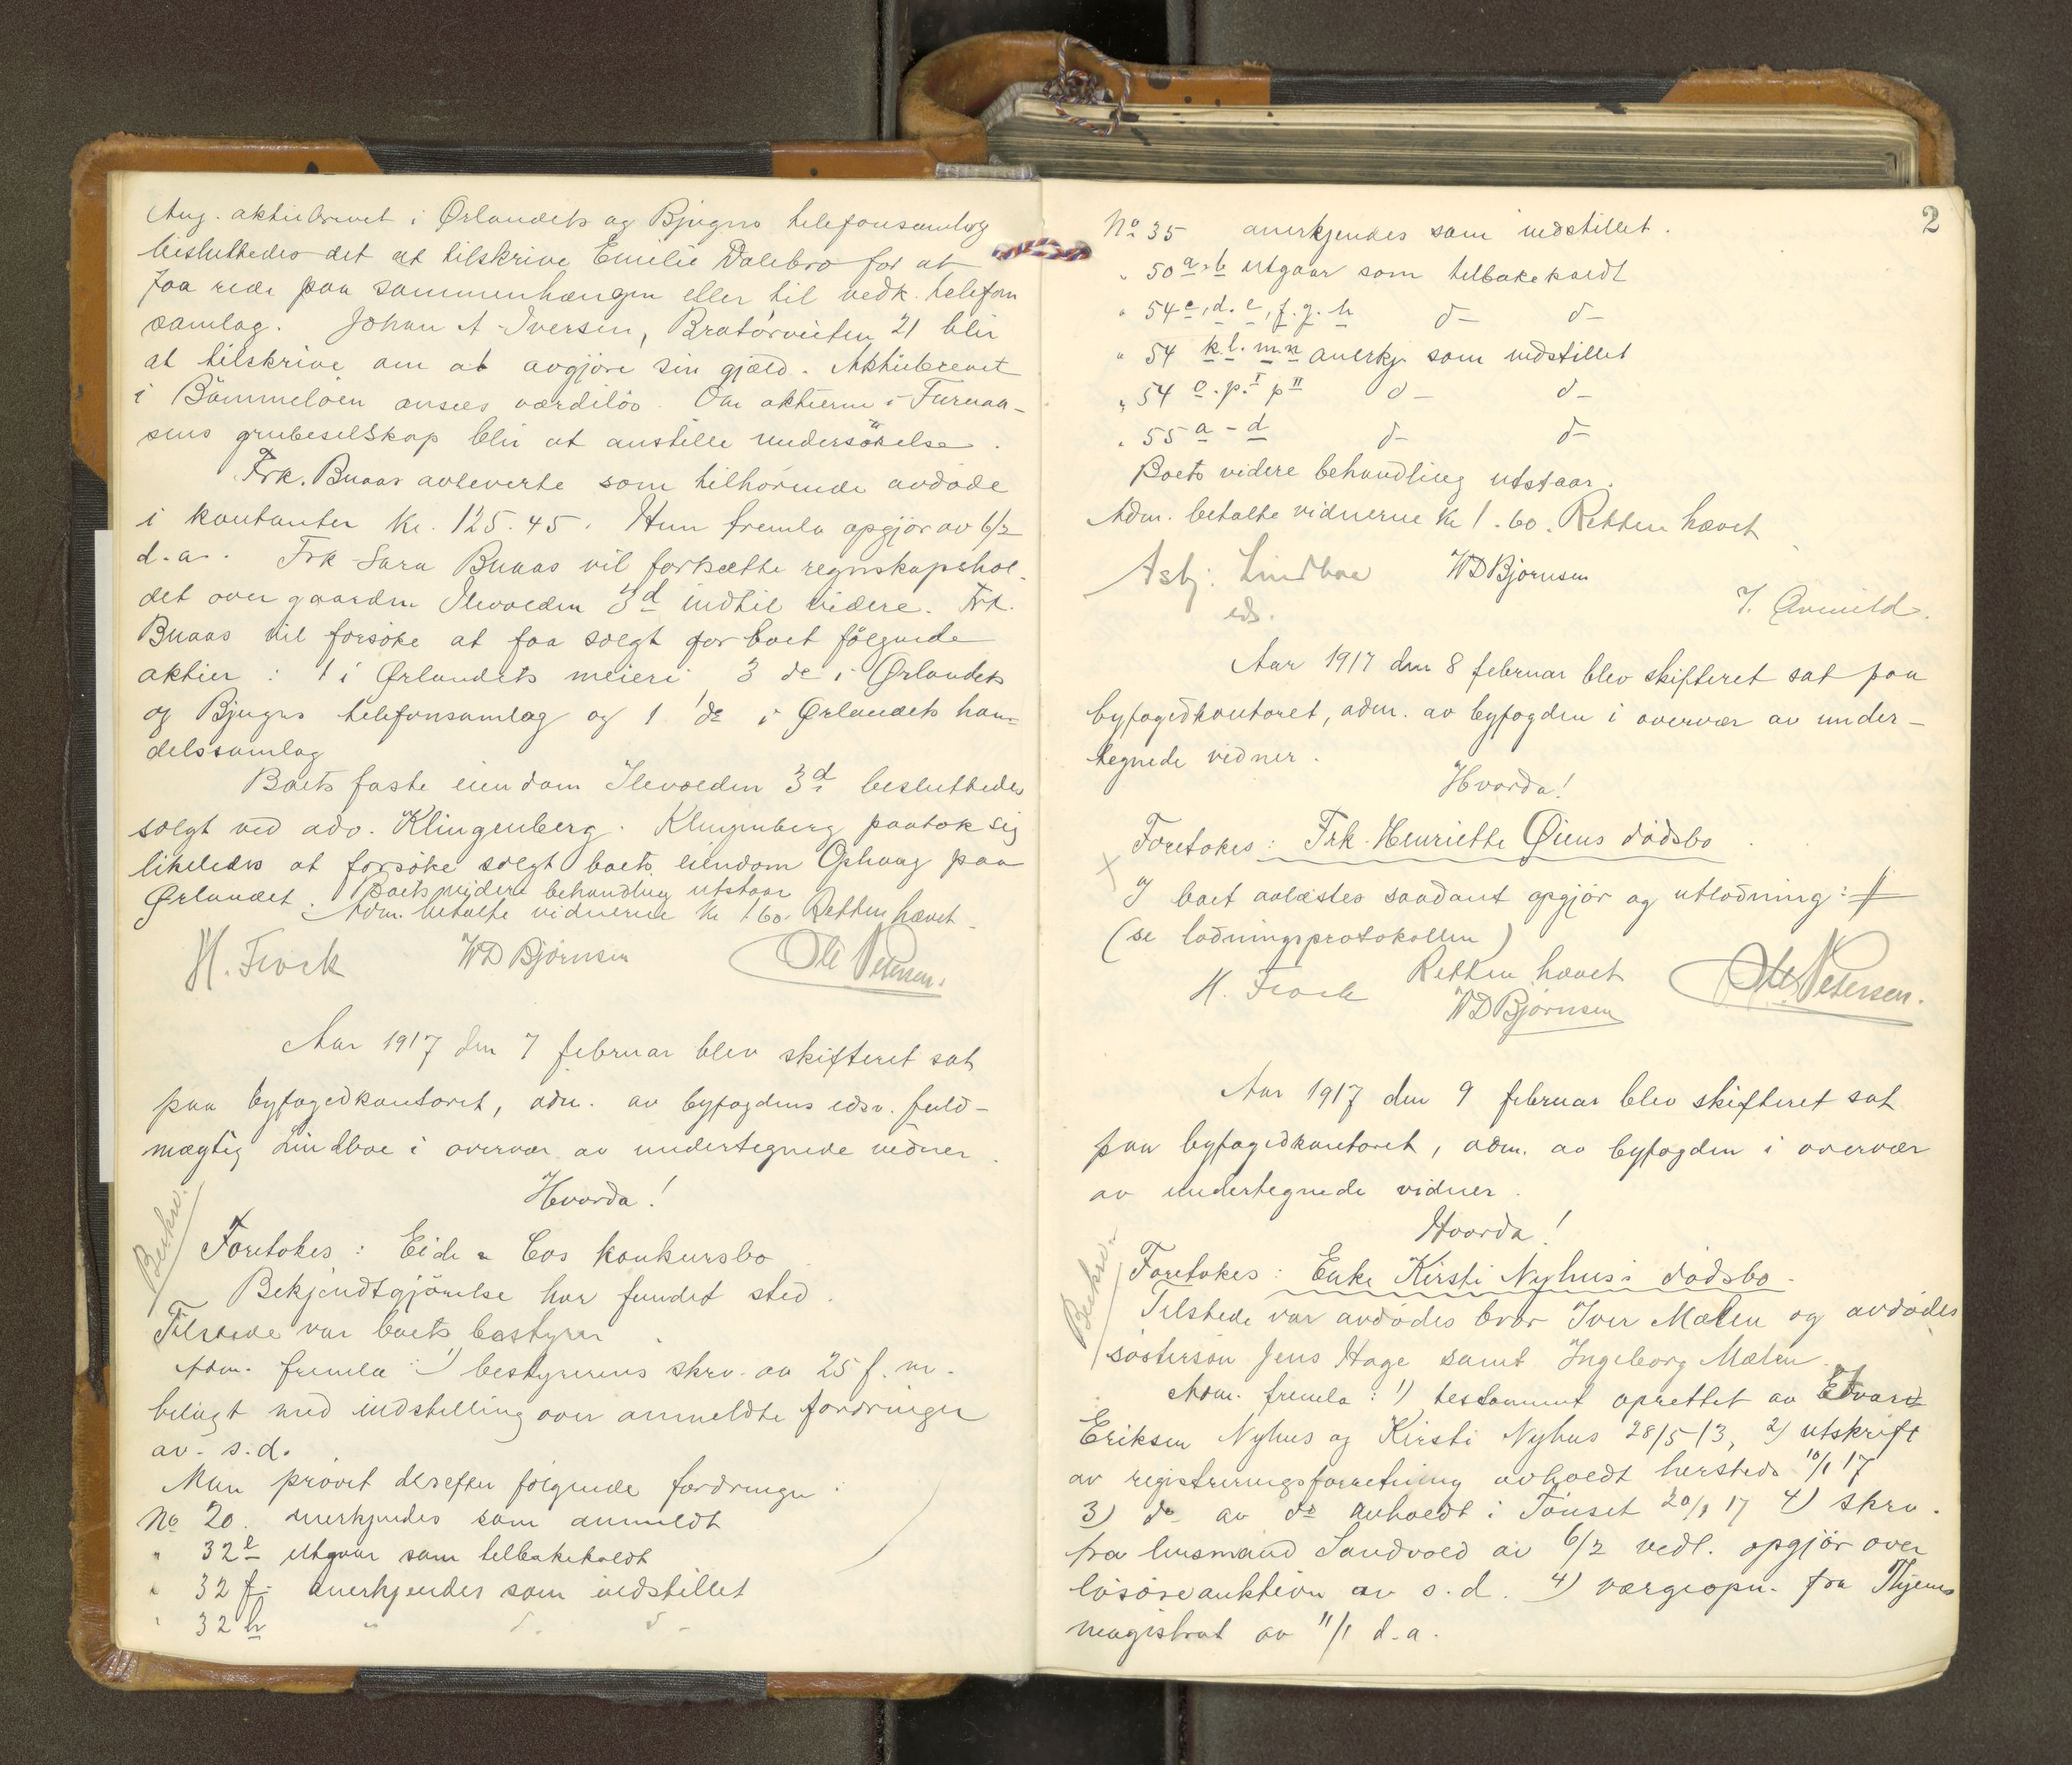 Ang. aktiebrevet i Ørlandets og Bjugns telefonsamlag
besluttedes det at tilskrive Emilie Dalebro for at
faa rede paa sammenhængen eller til vedk. telefon
samlag. Johan A. Iversen, Bratørveiten 21 blir
at tilskrive om at avgjøre sin gjæld. Aktiebrevet
i Bömmeloen ansees værdilös. Om aktierne i Furuaa-
sens grubeselskap blir at anstille undersökelse.
Frk. Buaas avleverte som tilhörende avdöde
i kontanter Kr. 125.45. Hun fremla opgjör av 6/2
d.a. Frk Sara Buaas vil fortsætte regnskapshol-
det over gaarden Ilevolden 3d indtil videre. Frk.
Buaas vil forsöke at faa solgt for boet fölgende
aktier: 1 i Ørlandets meieri 3 do i Ørlandets
og Bjugns telefonsamlag og 1 do i Ørlandets han-
delssamlag
Boets faste eiendom Ilevolden 3d besluttedes
solgt ved adv. Klingenberg. Klingenberg paatok sig
likeledes at forsöke solgt boets eiendom Ophaug paa
Ørlandet. Boets videre behandling utstaar
Adm. betalte vidnerne Kr 1 60. Retten hævet.
H. Frock WD Björnsen Ole Petersen.
Aar 1917 den 7 februar blev skifteret sat
paa byfogedkontoret, adm. av byfogdens edsv. fuld-
mægtig Lindboe i overvær av undertegnede vidner.
Hvorda!
Beskrv.
Foretokes: Eide & Cos konkursbo
Bekjendtgjörelse har fundet sted.
Tilstede var boets bestyrer
Adm. fremla: 1) bestyrerens skrv. av 25 f. m.
bilagt med indstilling over anmeldte fordringer
av s.d.
Man prövet derefter fölgende fordringer:
No 20. anerkjendes som anmeldt
" 32 e utgaar som tilbakekaldt
" 32 f. anerkjendes som indstillet
" 32 h " d. d-
2
No 35 anerkjendes som indstillet.
" 50 a-b utgaar som tilbakekaldt
" 54 c, d. e, f. g. h d- d-
" 54 k. l. m. n anerkj. som indstillet
" 54 o. p. I p II d- d-
" 55 a - d d- d-
Boets videre behandling utstaar.
Adm. betalte vidnerne Kr 1.60. Retten hævet
Asbj. Lindboe WD Björnsen
eds. J. Arnild.
Aar 1917 den 8 februar blev skifteret sat paa
byfogedkontoret, adm. av byfogden i overvær av under-
tegnede vidner.
Hvorda!
Foretokes: Frk. Henriette Øiens dödsbo.
I boet avlæstes saadant opgjör og utlodning:
(se lodningsprotokollen)
Retten hævet
H. Frock WD Björnsen Ole Petersen.
Aar 1917 den 9 februar blev skifteret sat
paa byfogedkontoret, adm. av byfogden i overvær
av undertegnede vidner.
Hvorda!
Beskrv.
Foretokes: Enke Kirsti Nyhus's dödsbo.
Tilstede var avdödes bror Iver Mælen og avdödes
søstersön Jens Hage samt Ingeborg Mælen.
Adm. fremla: 1) testamment oprettet av Edvard
Eriksen Nyhus og Kirsti Nyhus 28/5-13, 2) utskrift
av registreringsforretning avholdt hersteds 10/1 17
3) do av do avholdt i Tönset 20/1 17 4) skrv.
fra lensmand Sandvold av 6/2 vedl. opgjör over
lösöreauktion av s.d. 4) værgeopn. fra Thjems
magistrat av 11/1 d.a.